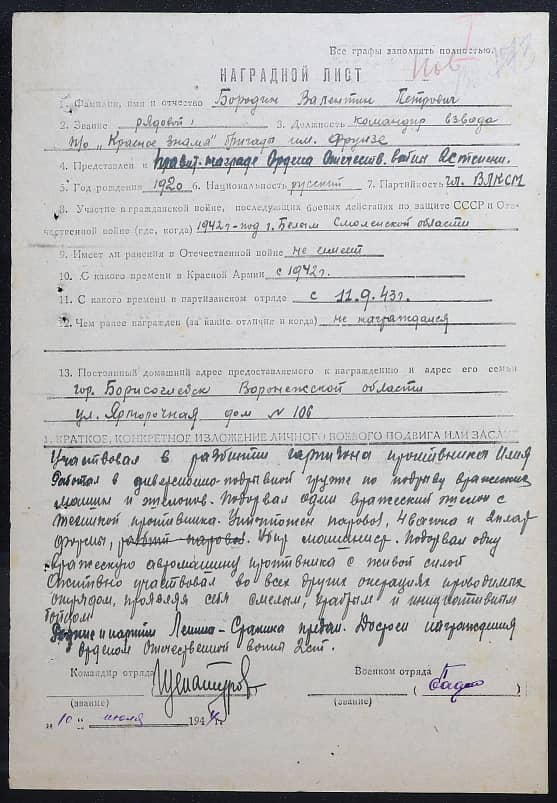 Все графы заполнять полностью.
НАГРАДНОЙ ЛИСТ
1. Фамилия, имя и отчество Бородин Валентин Петрович
2. Звание рядовой 3. Должность командир взвода
п/о "Красное знамя" бригады им. Фрунзе
4. Представлен к правит. награде Ордена Отечеств. войны 2 степени.
5. Год рождения 1920 6. Национальность русский 7. Партийность чл. ВЛКСМ
8. Участие в гражданской войне, последующих боевых действиях по защите СССР и Оте-
чественной войне (где, когда) 1942 г - под г. Белым Смоленской области
9. Имеет ли ранения в Отечественной войне не имеет
10. С какого времени в Красной Армии с 1942 г.
11. С какого времени в партизанском отряде с 11.9.43 г.
12. Чем ранее награжден (за какие отличия и когда) не награждался
13. Постоянный домашний адрес предоставляемого к награждению и адрес его семьи
гор. Борисоглебск Воронежской области
ул. Ярморочная дом № 106
1. КРАТКОЕ, КОНКРЕТНОЕ ИЗЛОЖЕНИЕ ЛИЧНОГО БОЕВОГО ПОДВИГА ИЛИ ЗАСЛУГ
Участвовал в разбитии гарнизона противника
Работал в диверсионно-подрывной группе по подрыву вражеских
машин и эшелонов. Подорвал один вражеский эшелон с
техникой противника. Уничтожен паровоз, 4 вагона и 2 плат
формы, Убит машинист. Подорвал одну
вражескую автомашину противника с живой силой
Активно участвовал во всех других операциях проводимых
отрядом, проявляя себя смелым, храбрым и инициативным
бойцом
Родине и партии Ленина-Сталина предан. Достоин награждения
орденом Отечественной войны 2 ст.
Командир отряда Военком отряда
(звание) (звание)
"10" июля 1944 г.